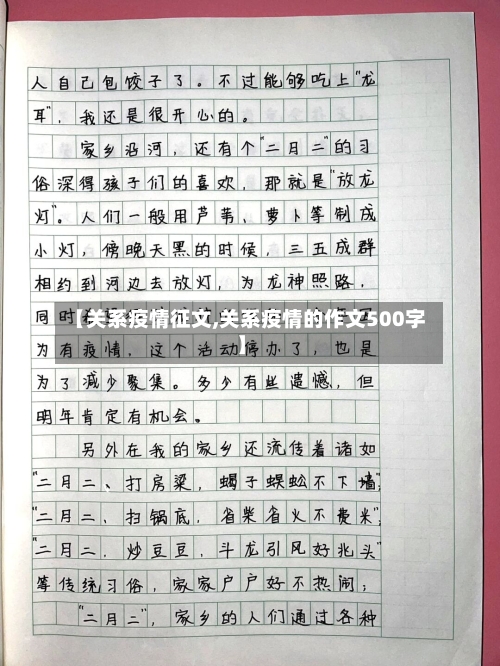 人自己包饺子了。不过能够吃上"龙
耳"，我还是很开心的。
家乡沿河，还有个"二月二"的习
俗深得孩子们的喜欢，那就是"放龙
灯"。人们一般用芦苇、萝卜等制成
小灯，傍晚天黑的时候，三五成群
相约到河边去放灯，为龙神照路，
同时
【关系疫情征文,关系疫情的作文500字
】
为有疫情，这个活动停办了，也是
为了减少聚集。多少有些遗憾，但
明年肯定有机会。
另外在我的家乡还流传着诸如
"二月二、打房梁，蝎子蜈蚣不下墙"，
"二月二、扫锅底，省柴省火不费米"，
"二月二．炒豆豆，斗龙引风好兆头"
等传统习俗，家家户户好不热闹；
"二月二"，家乡的人们通过各种